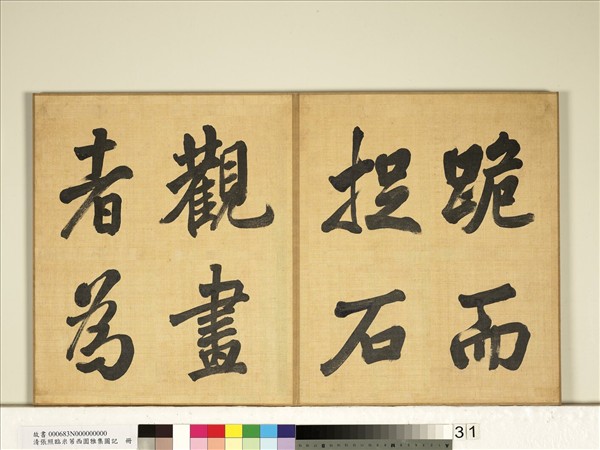 跪而
捉石
觀畫
者為
故書 000683N000000000
清張照臨米芾西園雅集圖記 冊
31